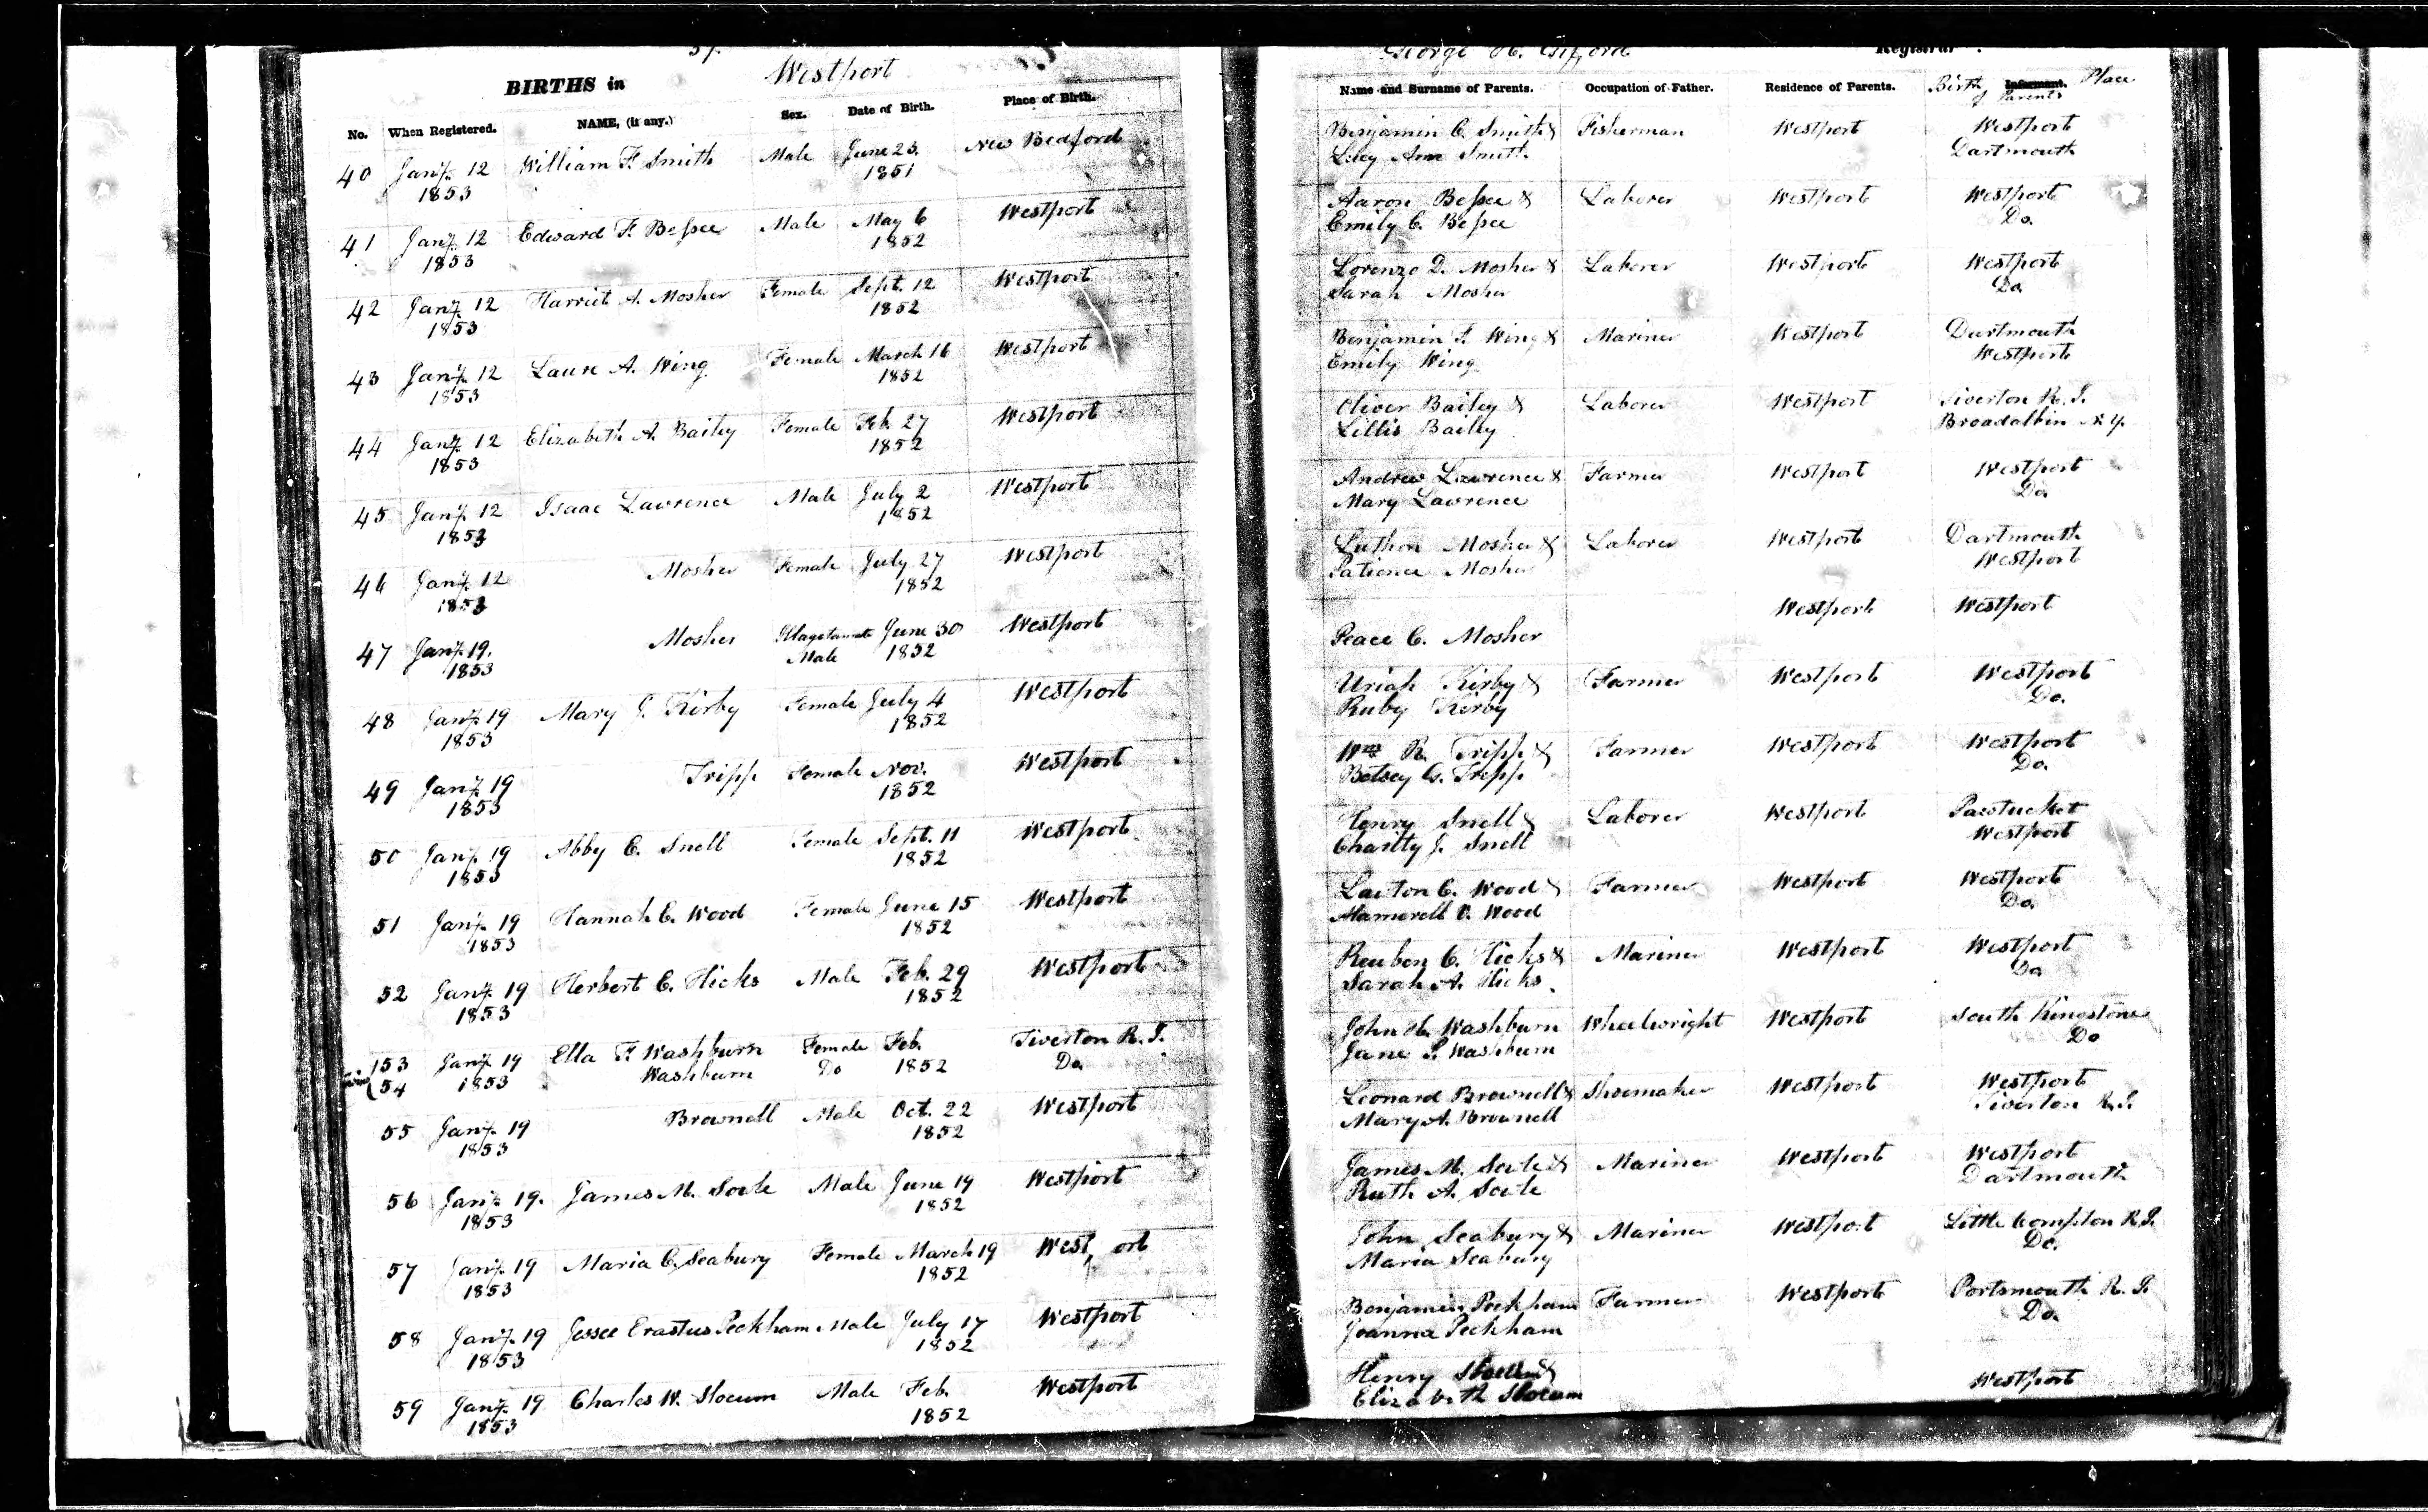 57.
BIRTHS in Westport
No. When Registered. NAME, (if any.) Sex. Date of Birth. Place of Birth.
40 Jany. 12 William F. Smith Male June 23. New Bedford
1853 1851
41 Jany. 12 Edward F. Bessee Male May 6 Westport
1853 1852
42 Jany. 12 Harriet A. Mosher Female Sept. 12 Westport
1853 1852
43 Jany. 12 Laure A. Wing Female March 16 Westport
1853 1852
44 Jany. 12 Elizabeth A. Bailey Female Feb. 27 Westport
1853 1852
45 Jany. 12 Isaac Lawrence Male July 2 Westport
1853 1852
46 Jany. 12 Mosher Female July 27 Westport
1853 1852
47 Jany. 19. Mosher June 30 Westport
1853 Male 1852
48 Jany. 19 Mary J. Kirby Female July 4 Westport
1853 1852
49 Jany. 19 Tripp Female Nov. Westport
1853 1852
50 Jany. 19 Abby C. Snell Female Sept. 11 Westport
1853 1852
51 Jany. 19 Hannah E. Wood Female June 15 Westport
1853 1852
52 Jany. 19 Herbert C. Hicks Male Feb. 29 Westport
1853 1852
53 Jany. 19 Ella F. Washburn Female Feb. Tiverton R.I.
Twins 54 1853 Washburn Do 1852 Do.
55 Jany. 19 Brownell Male Oct. 22 Westport
1853 1852
56 Jany. 19. James M. Soule Male June 19 Westport
1853 1852
57 Jany. 19 Maria C. Seabury Female March 19 Westport
1853 1852
58 Jany. 19 Jessee Erastus Peckham Male July 17 Westport
1853 1852
59 Jany. 19 Charles W. Slocum Male Feb. Westport
1853 1852
George H. Gifford Registrar.
Name and Surname of Parents. Occupation of Father. Residence of Parents. Birth Informant. Place
of Parents
Benjamin C. Smith & Fisherman Westport Westport
Ann Smith Dartmouth
Aaron Bessee & Laborer Westport Westport
Emily C. Bessee Do.
Lorenzo D. Mosher & Laborer Westport Westport
Sarah Mosher Do
Benjamin F. Wing & Mariner Westport Dartmouth
Emily Wing Westport
Oliver Bailey & Laborer Westport Tiverton R.I.
Lillis Bailey Broadalbin N.Y.
Andrew Lawrence & Farmer Westport Westport
Mary Lawrence Do.
Luthan Mosher & Laborer Westport Dartmouth
Patience Mosher Westport
Westport Westport
Peace C. Mosher
Uriah Kirby & Farmer Westport Westport
Ruby Kirby Do.
Wm. R. Tripp & Farmer Westport Westport
Betsey G. Tripp Do.
Henry Snell & Laborer Westport Pawtucket
Charitty J. Snell Westport
Laiton C. Wood & Farmer Westport Westport
Wood Do.
Reuben C. Hicks & Mariner Westport Westport
Sarah A. Hicks. Do
John H. Washburn Wheelwright Westport South Kingstone
Jane S. Washburn Do
Leonard Brownell & Shoemaker Westport Westport
Mary A. Brownell Tiverton R.I.
James M. Soule & Mariner Westport Westport
Ruth A. Soule Dartmouth
John Seabury & Mariner Westport Little Compton R.I.
Maria Seabury Do.
Benjamin Peckham Farmer Westport Portsmouth R.I.
Joanna Peckham Do.
Henry Slocum &
Elizabeth Slocum Westport